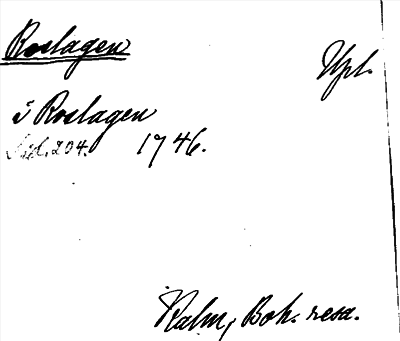 Roslagen
Upl.
i Roslagen
Sid. 204. 1746.
Kalm, Boh. resa.